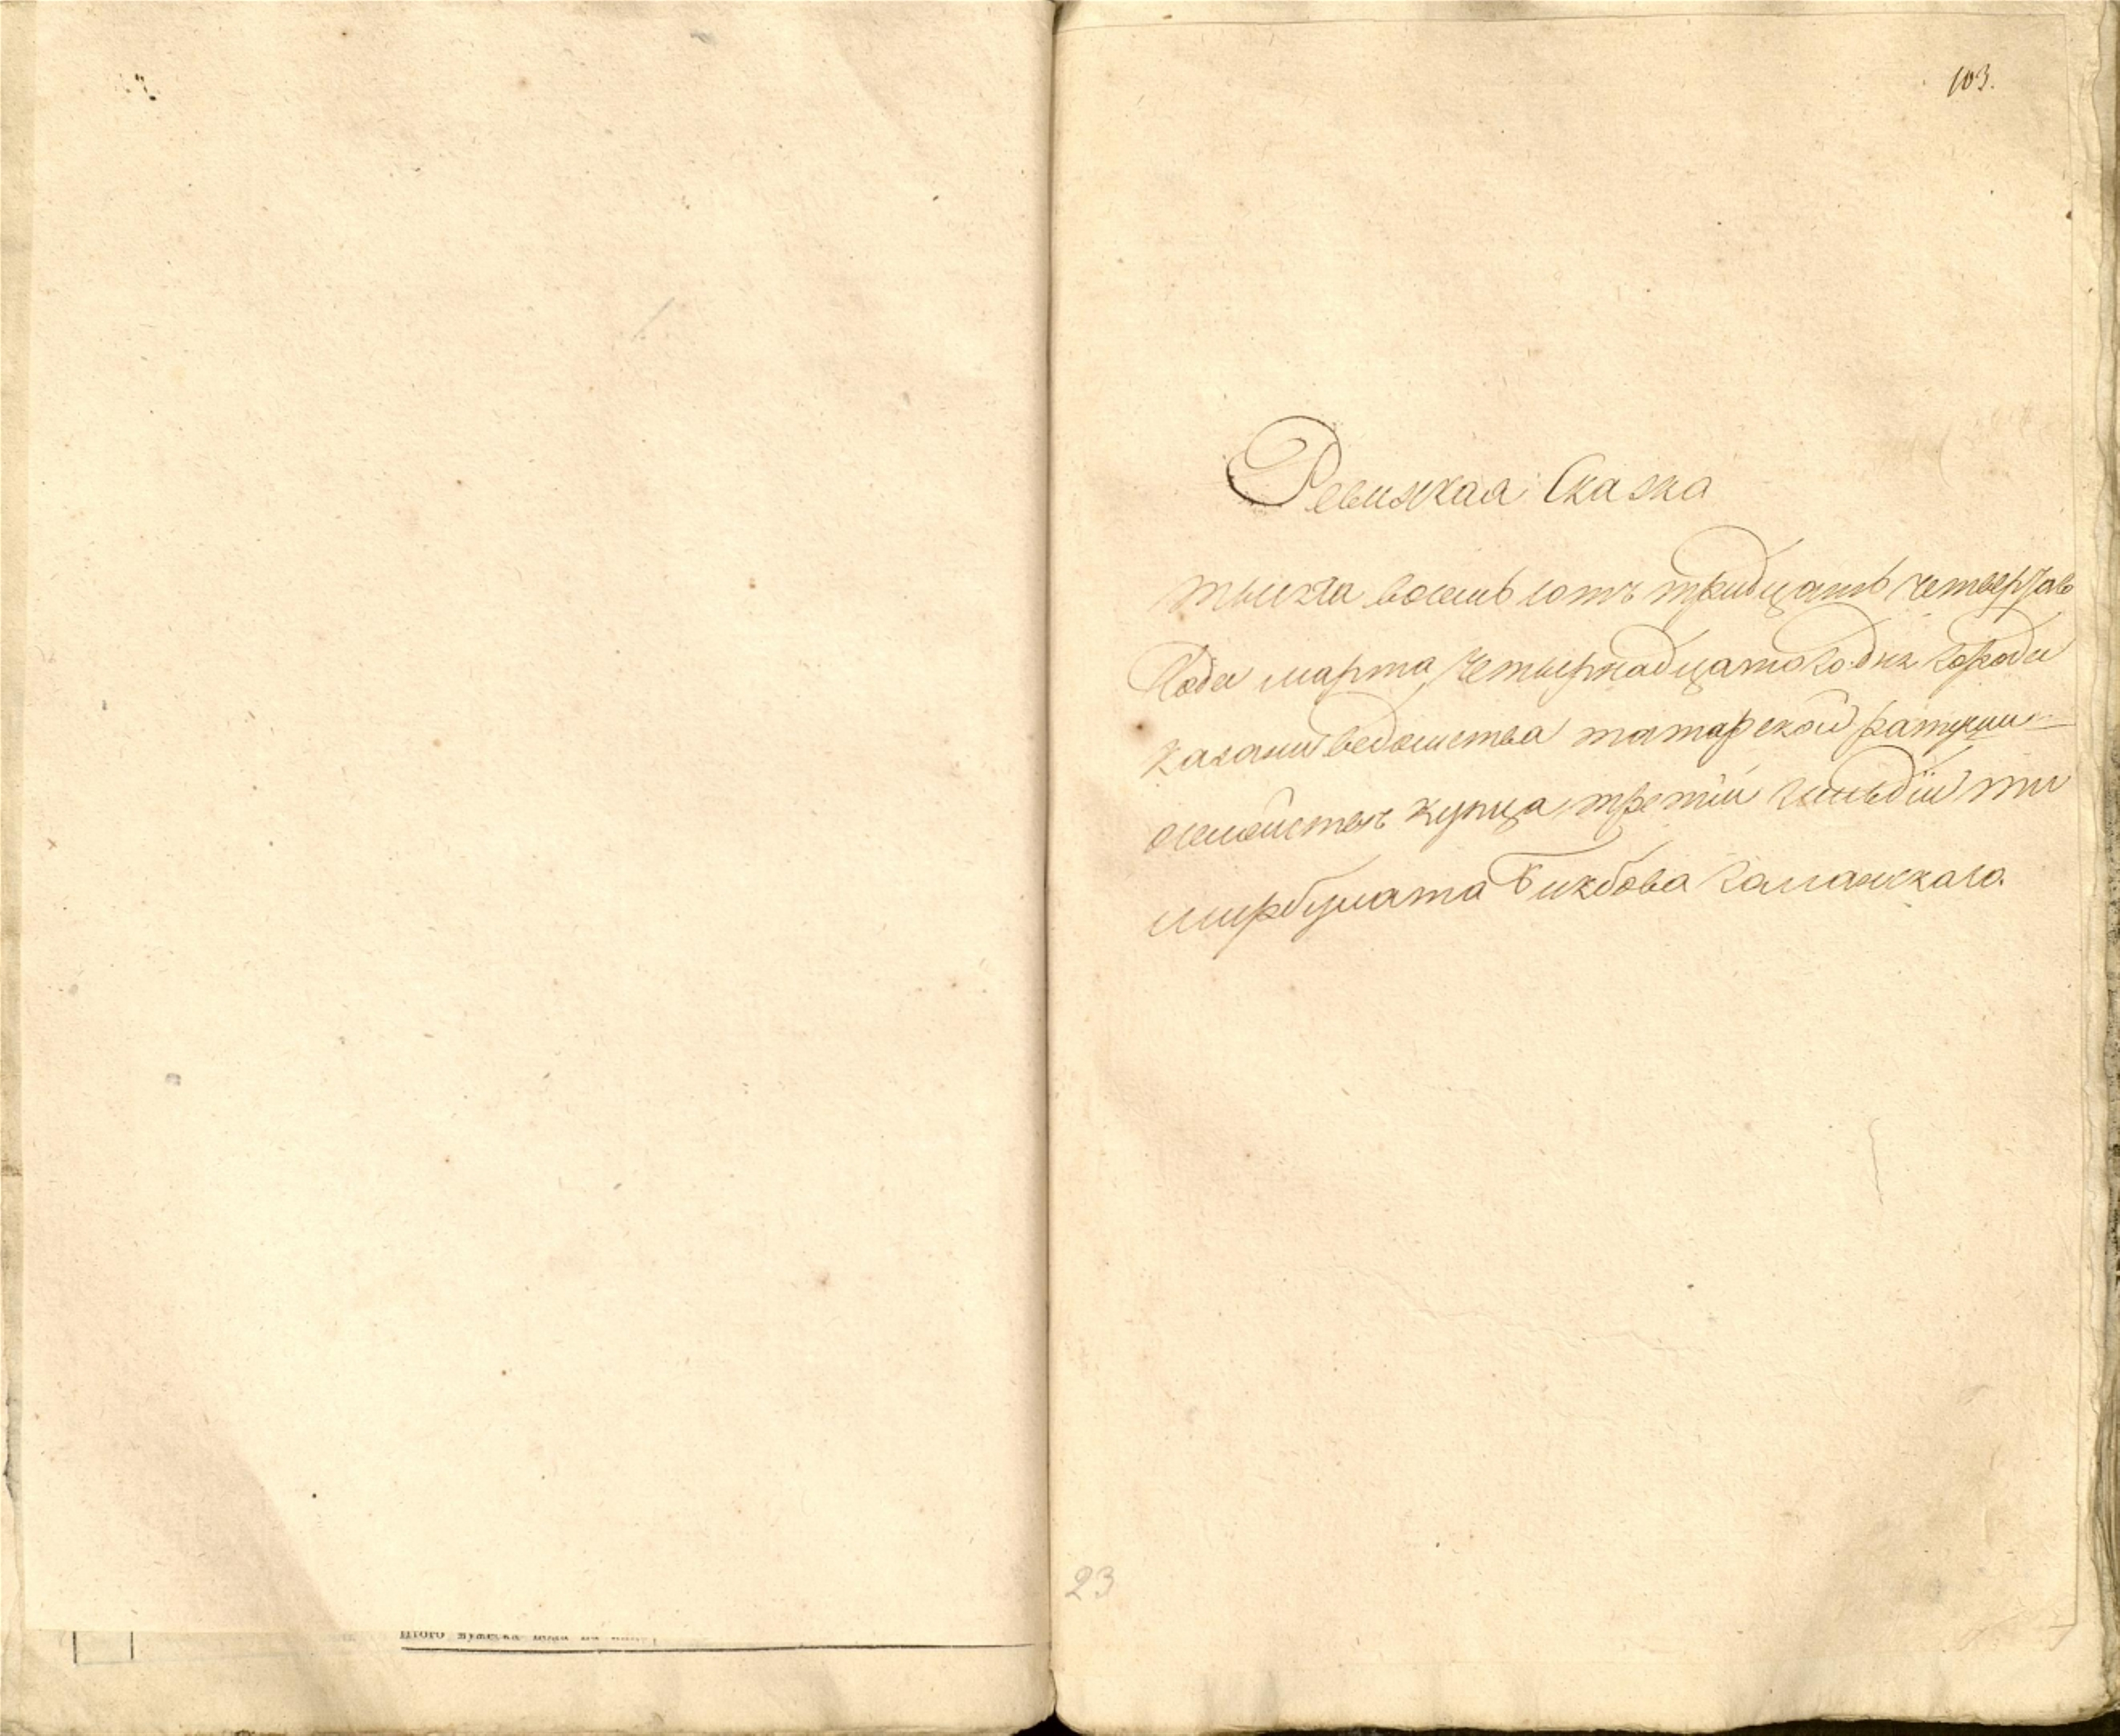 103.
Ревижская Сказка
тысяча восемь сотъ тридцать четвертаго
Года марта четырнадцатого дня города
казани ведомства татарской ратуши
о семействе купца третий гильдіи ти
мирбулата Бикбова
23
Итого мужеска пола на лицо